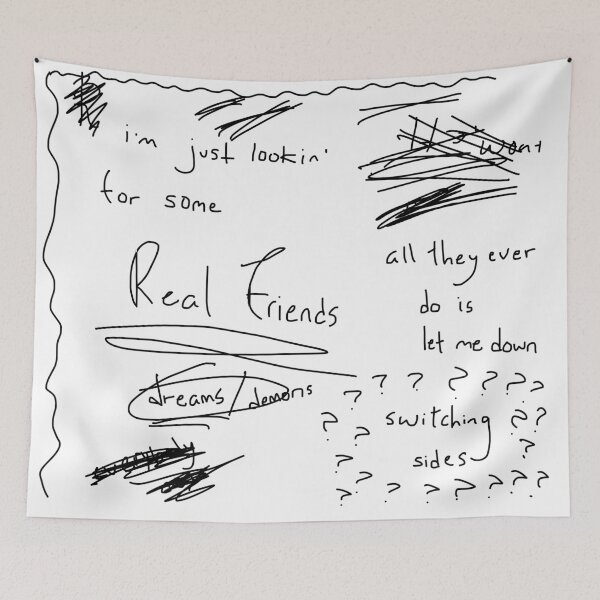 i'm just lookin'
for some
Real Friends
all they ever
do is
let me down
dreams/demons
? ? ? ? ? ? ?
? switching ? ?
? sides ?
? ? ? ? ? ? ? ? ?